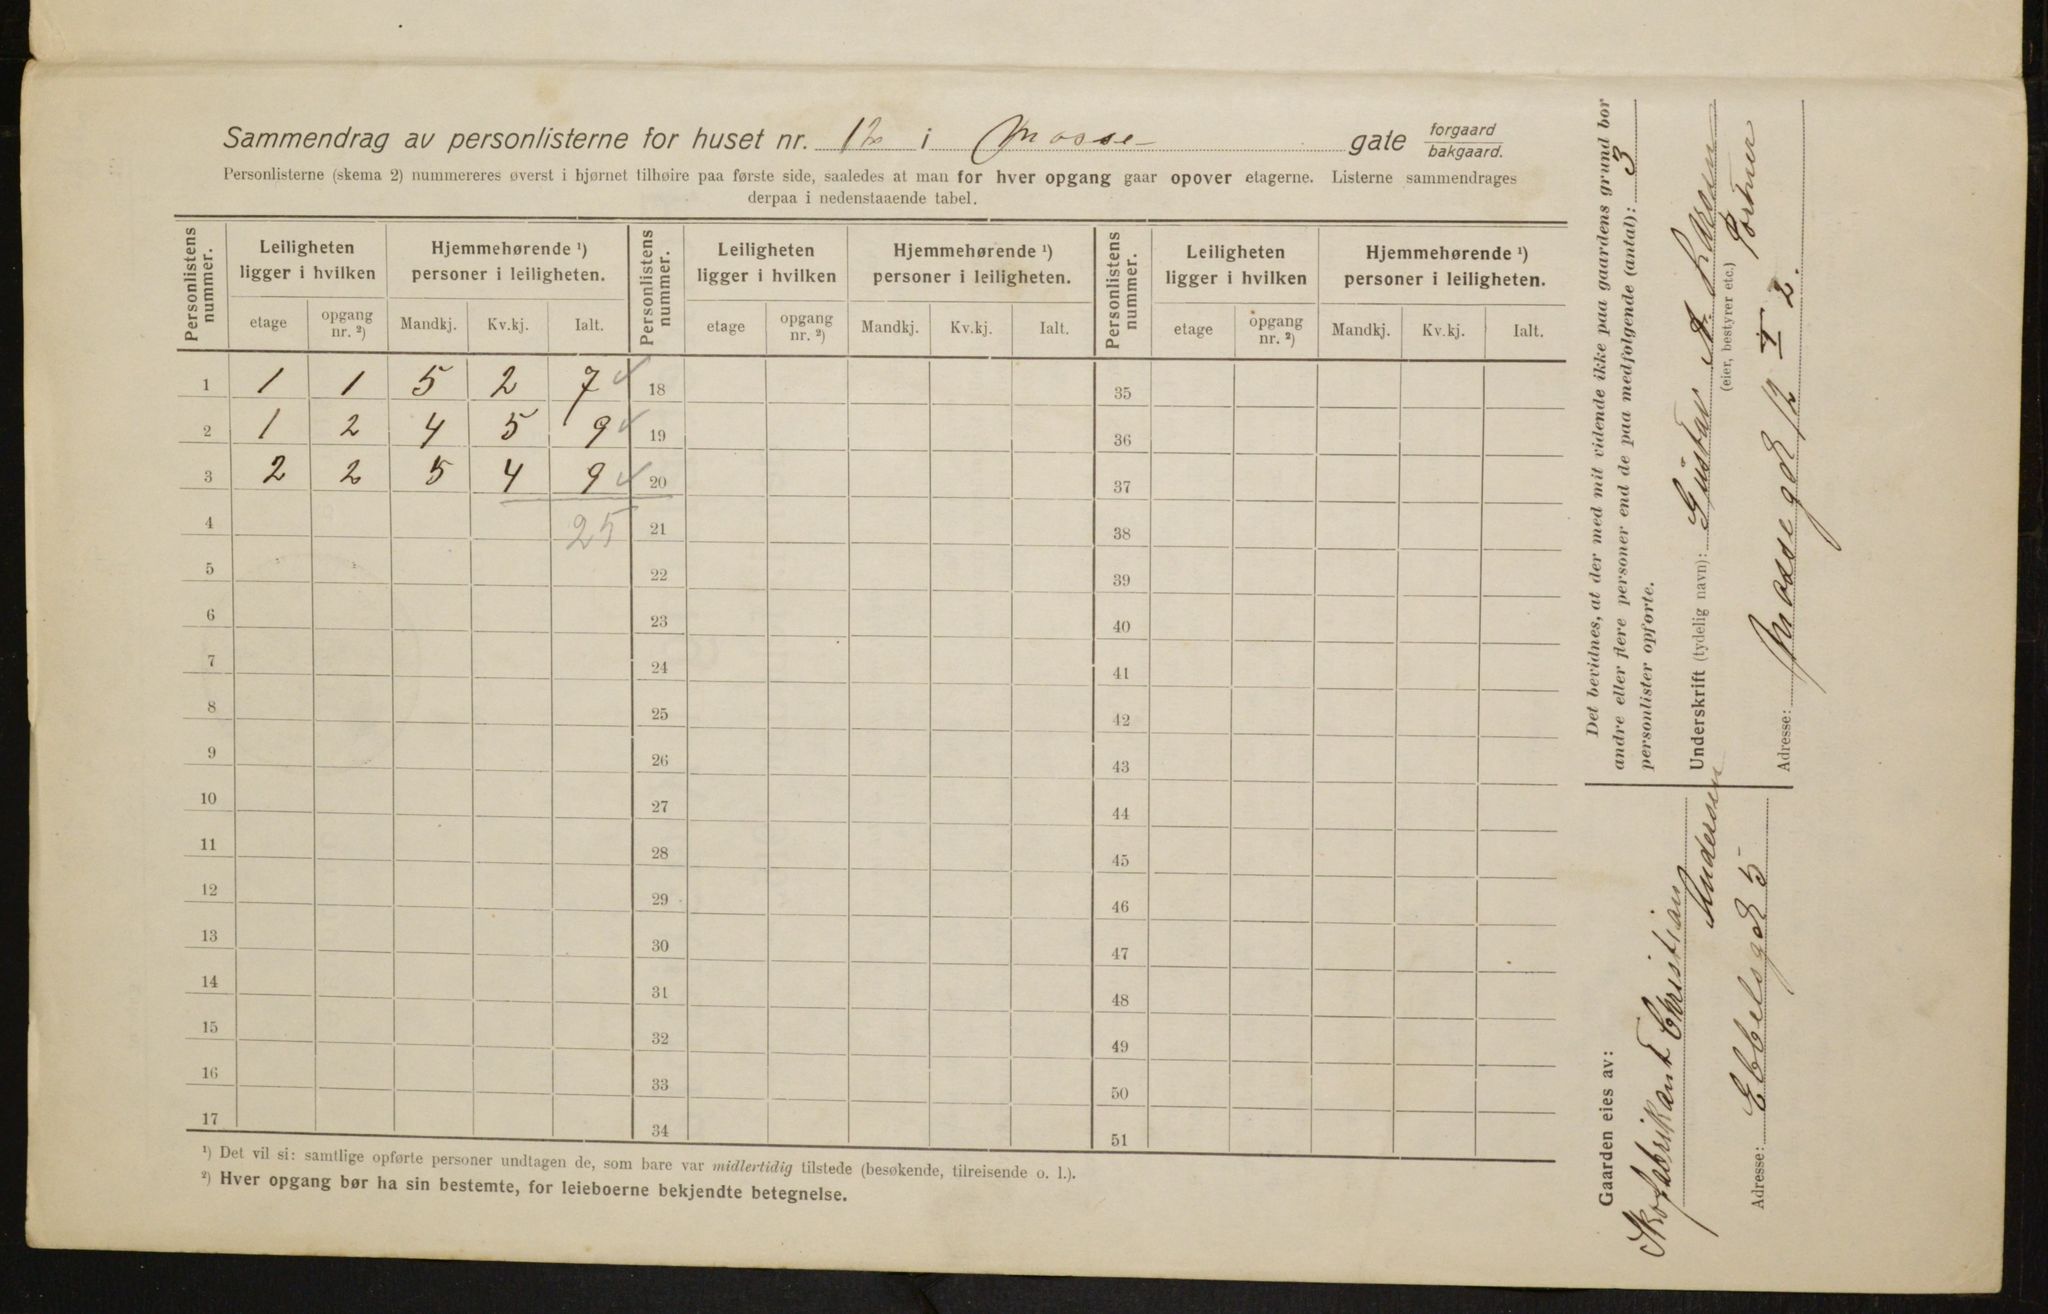 Sammendrag av personlisterne for huset nr. 12 i Mosse gate forgaard
bakgaard.
Personlisterne (skema 2) nummereres øverst i bjørnet tilhøire paa første side, saaledes at man for hver opgang gaar opover etagerne. Listerne sammendrages
derpaa i nedenstaaende tabel.
Personlistens nummer. Leiligheten ligger i hvilken Hjemmehørende ¹) personer i leiligheten. Personlistens nummer. Leiligheten ligger i hvilken Hjemmehørende ¹) personer i leiligheten. Personlistens nummer. Leiligheten ligger i hvilken Hjemmehørende ¹) personer i leiligheten.
etage opgang nr. ²) Mandkj. Kv.kj. Ialt. etage opgang nr. ²) Mandkj. Kv.kj. Ialt. etage opgang nr. ²) Mandkj. Kv.kj. Ialt.
1 1 1 5 2 7 18 35
2 1 2 4 5 9 19 36
3 2 2 5 4 9 20 37
4 25 21 38
5 22 39
6 23 40
7 24 41
8 25 42
9 26 43
10 27 44
11 28 45
12 29 46
13 30 47
14 31 48
15 32 49
16 33 50
17 34 51
¹) Det vil si: samtlige opførte personer undtagen de, som bare var midlertidig tilstede (besøkende, tilreisende o. l.).
²) Hver opgang bør ha sin bestemte, for leieboerne bekjendte betegnelse.
Det bevidnes, at der med mit vidende ikke paa gaardens grund bor
andre eller flere personer end de paa medfølgende (antal): 3
personlister opførte.
Underskrift (tydelig navn): Gustav A. Larsen
(eier, bestyrer etc.) Portner
Adresse: Mossegd 12 I 2.
Gaarden eies av:
Skofabrikant Christian
Andersen
Adresse: Ebbelsgd 5